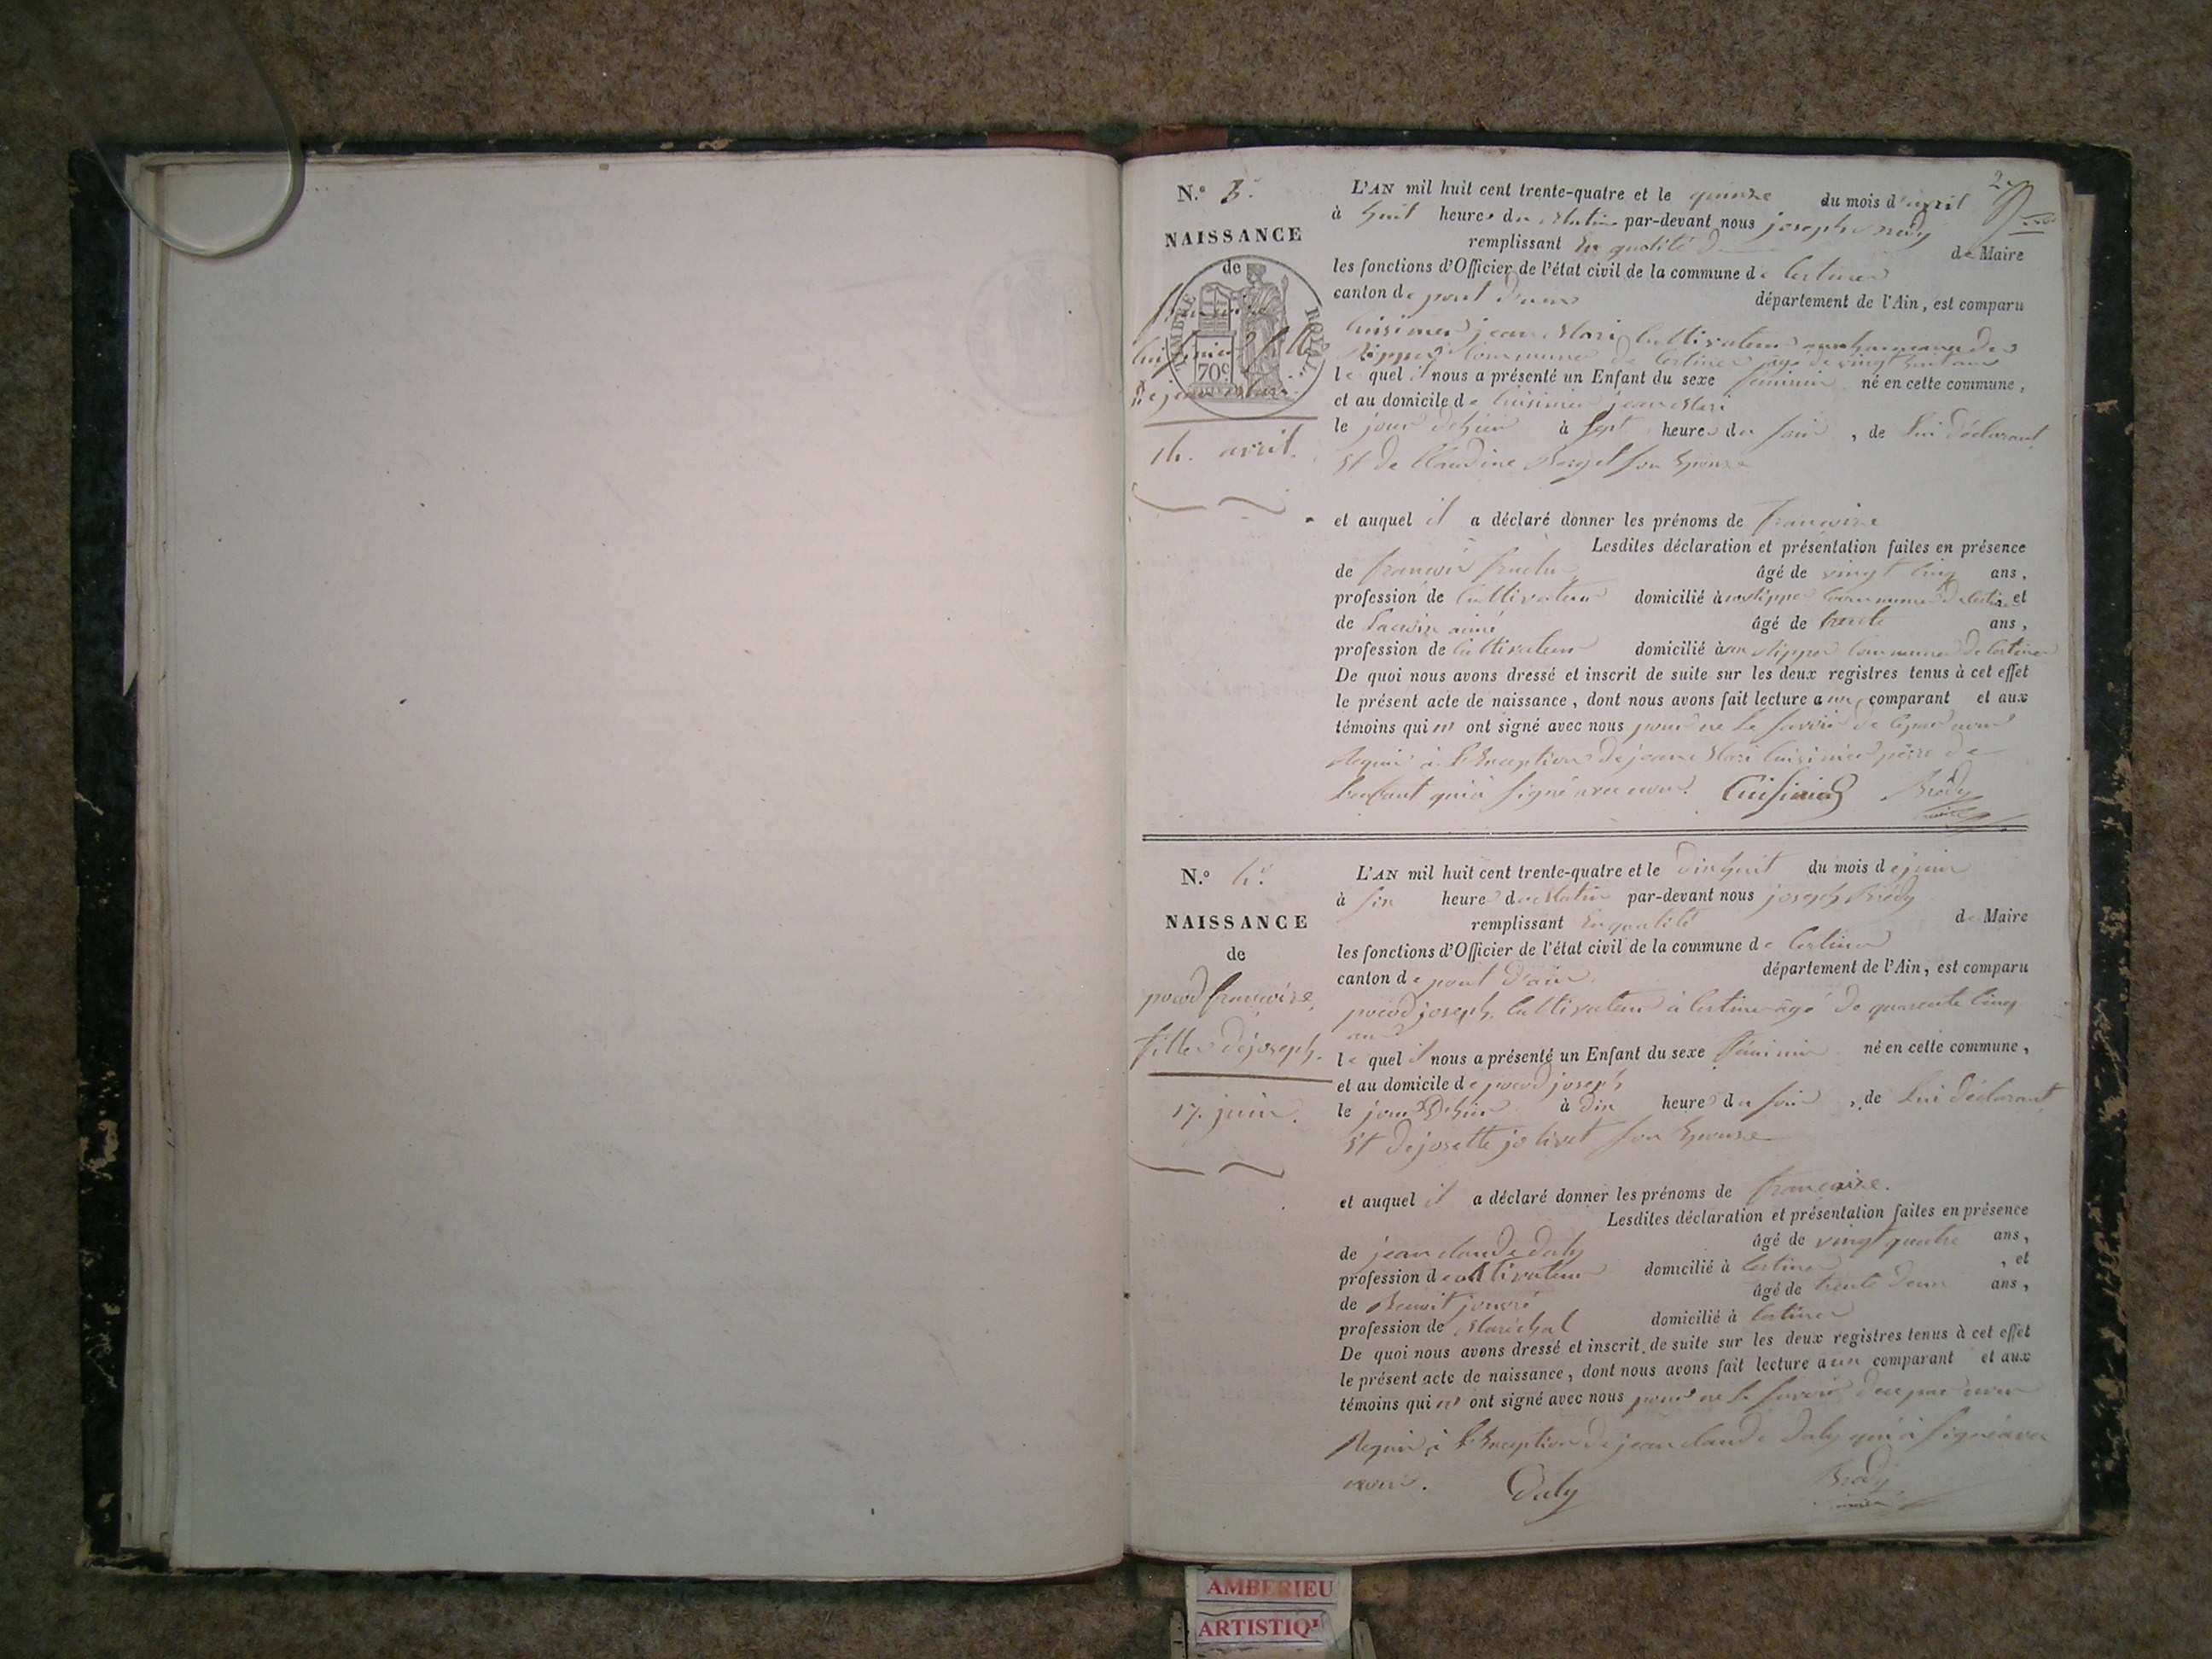 2e
N.º 3e.
NAISSANCE
de
TIMBRE ROYAL
70c
14. avril.
L'AN mil huit cent trente-quatre et le quinze du mois d'avril
à huit heures du Matin par-devant nous joseph
remplissant En qualité de Maire
les fonctions d'Officier de l'état civil de la commune de Certines
canton de pont d'ain département de l'Ain, est comparu
Cuisinier jean Mari Cultivateur au hameau des
Rippes Commune de Certines âgé de vingt huit ans
le quel il nous a présenté un Enfant du sexe féminin né en cette commune,
et au domicile de Cuisinier jean Mari
le jour d'hier à Sept heures du Soir, de Lui déclarant
Et de Claudine Son Epouse
et auquel il a déclaré donner les prénoms de françoise
Lesdites déclaration et présentation faites en présence
de françois âgé de vingt Cinq ans,
profession de Cultivateur domicilié à Commune de Certines et
de âgé de trente ans,
profession de Cultivateur domicilié à Commune de Certines
De quoi nous avons dressé et inscrit de suite sur les deux registres tenus à cet effet
le présent acte de naissance, dont nous avons fait lecture au comparant et aux
témoins qui n' ont signé avec nous pour ne Le Savoir de Ce par nous
Requis à L'Exception de jean Mari Cuisinier père de
Lenfant qui à Signé avec nous. Cuisinier Brédy
N.º 4e.
NAISSANCE
de
pocod françoise
fille de joseph.
17. juin.
L'AN mil huit cent trente-quatre et le dix huit du mois de juin
à Six heures du Matin par-devant nous joseph Brédy
remplissant En qualité de Maire
les fonctions d'Officier de l'état civil de la commune de Certines
canton de pont d'ain département de l'Ain, est comparu
pocod joseph, Cultivateur à Certines âgé de quarente Cinq
ans
le quel il nous a présenté un Enfant du sexe féminin né en cette commune,
et au domicile de pocod joseph
le jour D'hier à dix heures du Soir, de Lui déclarant
Et de josette jolivet Son Epouse
et auquel il a déclaré donner les prénoms de françoise.
Lesdites déclaration et présentation faites en présence
de jean claude daly âgé de vingt quatre ans,
profession de cultivateur domicilié à Certines, et
de Benoit âgé de trente deux ans,
profession de Maréchal domicilié à Certines
De quoi nous avons dressé et inscrit de suite sur les deux registres tenus à cet effet
le présent acte de naissance, dont nous avons fait lecture au comparant et aux
témoins qui n' ont signé avec nous pour ne Le Savoir de ce par nous
Requis à L'Exception de jean claude daly qui à Signé avec
nous. Daly Brédy
AMBERIEU
ARTISTIQU